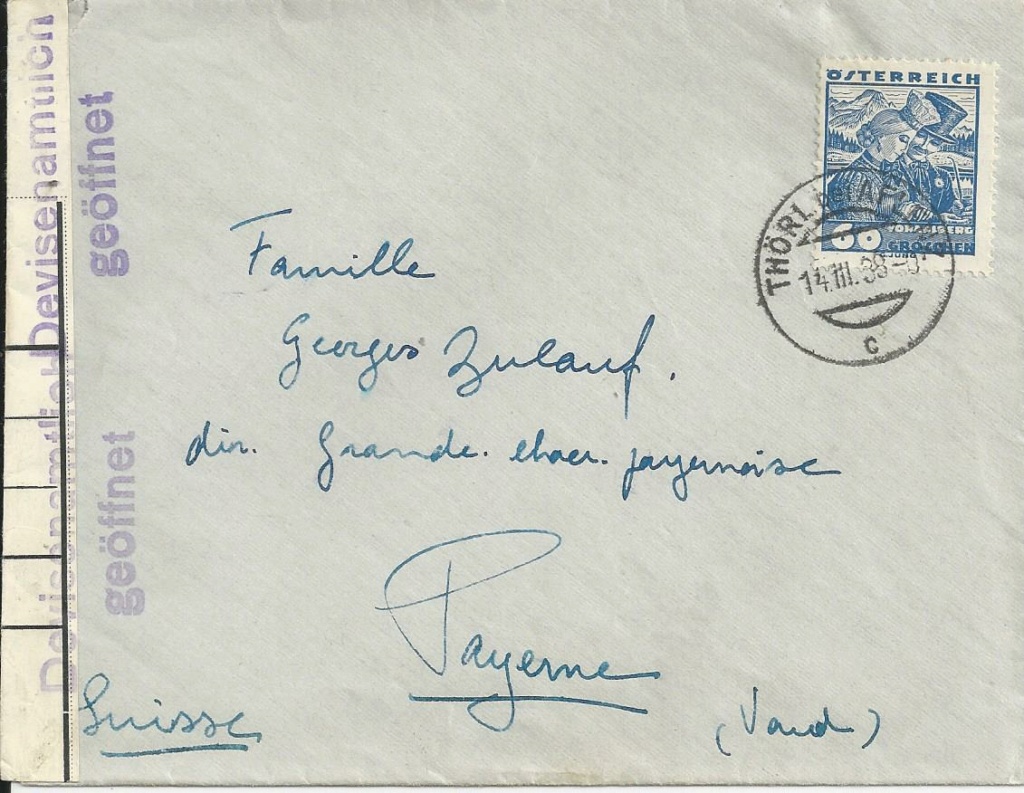 Devisenamtlich
geöffnet
Devisenamtlich
geöffnet
ÖSTERREICH
60
VORARLBERG
GROSCHEN
THÖRL
14.III.38
C
Famille
Georges Zulauf.
dir. Grande. chocr. payernoise
Payerne
Suisse
(Vaud)